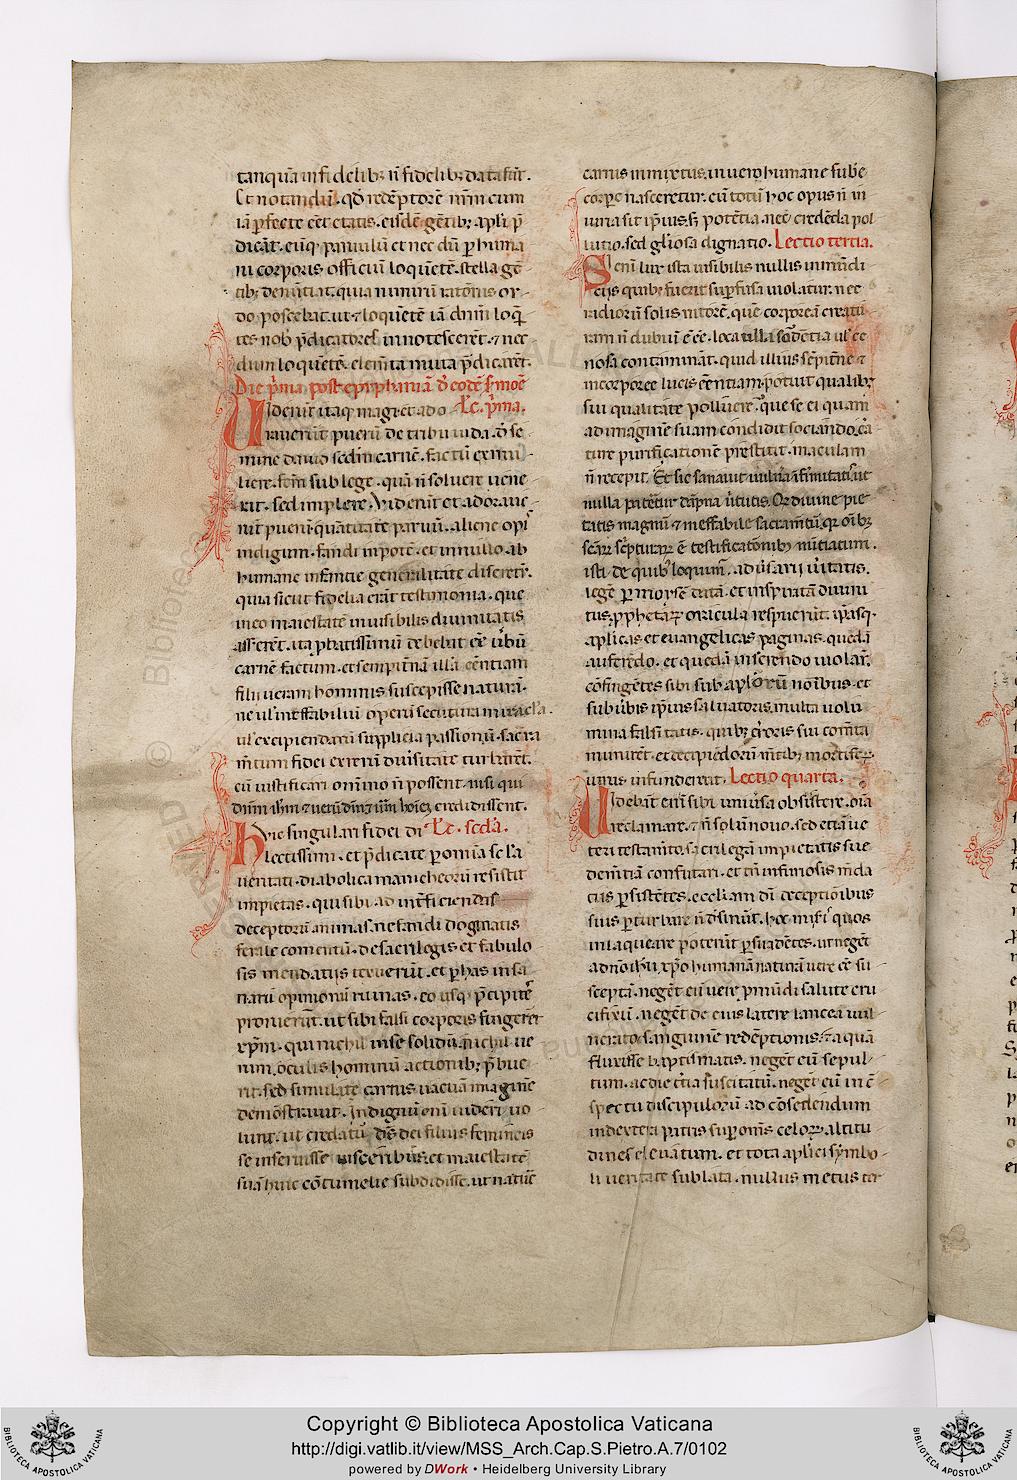 tanquā infidelib; ñ fidelib; data sūt.
Et notandū. qd redēptorē nr̄m cum
iā ꝑfecte eēt etatis. eisdē gētib; apłi p̄
dicāt. eūq; paruulū et nec dū ꝑ huma
ni corporis officiū loquētē. stella gē
tib; denūtiat. quia nimirū rationis or
do poscebat. ut & loquētē iā dnm̄ loq̄
tes nob̄ p̄dicatores innotescerēt. & nec
dum loquētē. elem̄ta muta p̄dicarēt.
Die p̄ma post epyphaniā de eodē s̄moe
Uiderūt itaq; magi et ado Lc̄. p̄ma.
rauerūt puerū de tribu iuda. de se
mine dauid sedm̄ carnē. factū ex mu
liere. fcm̄ sub lege. quā ñ soluere uene
rat. sed implere. Viderūt et adoraue
rūt puerū. quātitate paruū. aliene opis
indigum. fandi inpotē. et in nullo ab
humane infantie generalitate discretū.
quia sicut fidelia erāt testimonia. que
in eo maiestatē inuisibilis diuinitatis
assererēt. ita ꝓbatissimū debebat eē ūbū
carnē factum. et sempit̄nā illā eēntiam
filii ueram hominis suscepisse naturā.
ne ul ineffabiliū operū secutura miracl̄a.
ul excipiendarū supplicia passionū. sacra
m̄tum fidei rerum diu̓sitate turbarēt.
cū iustificari omnino ñ possent. nisi qui
dnm̄ ih̄m & uerū dm̄ & uerū hoiēz credidissent.
Huic singulari fidei di Lc̄. scda.
lectissimi. et p̄dicate ꝑ omnia secl̄a
ueritati. diabolica manicheorū resistit
impietas. qui sibi ad int̄ficiendas
deceptorū animas. nefandi dogmatis
ferale comentū. de sacrilegis et fabulo
sis mendatiis texuerūt. et ꝑ has insa
narū opinionū ruinas. eo usq; p̄cipites
proruerūt. ut sibi falsi corporis fingerēt
xp̄m. qui nichil in se solidū. nichil ue
rum. oculis hominū actionib; p̄bue
rit. sed simulate carnis uacuā imaginē
demōstrauit. Indignū enī uideri uo
lunt. ut credatur ds̄ dei filius femineis
se inseruisse uiscerib; et maiestatē
suā huic cōtumelie subdidisse. ut nature
carnis inmixtus. in uero humane subē
corpore nasceretur. cū totū hoc opus ñ in
iuria sit ip̄ius. s; potētia. nec credēda pol
lutio. sed gl̄iosa dignatio. Lectio tertia.
Si enī lux ista uisibilis nullis inmūdi
ciis quib; fuerit sup̄fusa uiolatur. nec
radiorū solis nitorē. quē corporeā creatu
ram ñ dubiū ē eē. loca ulla sordētia ul ce
nosa contamināt. quid illius sempit̄ne &
incorporee lucis eēntiam. potuit qualib;
sui qualitate polluere. que se ei quam
ad imaginē suam condidit sociando. cā
ture purificationē prestitit. maculam
ñ recepit. Et sic sanauit uuln̄a īfirmitatis. ut
nulla pateretur dāpna uirtutis. Qr̄ diuine pie
tatis magnū & ineffabile sacram̄tū. qr̄ oīb;
scāꝝ sc̄pturaꝝ ē testificationib; nūtiatum.
isti de quib; loquimur. adu̓sarii ueritatis.
legē ꝑ moysē datā. et inspiratā diuini
tus; ꝓphetaꝝ oracula respuerūt. ip̄asq;
aplicas et euangelicas paginas. quedā
auferēdo. et quedā inserendo uiolarūt.
cōfingētes sibi sub aplorū noībus. et
sub ūbis ip̄ius saluatoris. multa uolu
mina falsitatis. quib; erroris sui com̄ta
munirēt. et decipiēdorū mētib; mortiferū
uirus infunderent. Lectio quarta.
Uidebāt enī sibi uniu̓sa obsistere. oīa
reclamare. & ñ solū nouo. sed etiā ue
teri testam̄to. sacrilegā impietatis sue
dem̄tiā confutari. et tn̄ infuriosis mēda
ciis ꝑsistētes. eccliam di deceptiōibus
suis ꝑturbare ñ desinūt. hoc miseris quos
inlaqueare poterūt ꝑsuadētes. ut negēt
a dnō ih̄u xp̄o humanā naturā uere eē su
sceptā. negēt eū uere ꝓ mūdi salute cru
cifixū. negēt de eius latere lancea uul
nerato. sanguinē redēptionis. & aquā
fluxisse baptismatis. negēt eū sepul
tum. ac die tc̄ia suscitatū. negēt eū in cō
spectu discipulorū ad cōsedendum
in dextera patris sup̄ om̄s celoꝝ altitu
dines eleuatum. et tota aplici symbo
li ueritate sublata. nullus metus ter
Copyright © Biblioteca Apostolica Vaticana
http://digi.vatlib.it/view/MSS_Arch.Cap.S.Pietro.A.7/0102
powered by DWork • Heidelberg University Library
BIBLIOTECA APOSTOLICA VATICANA
BIBLIOTECA APOSTOLICA VATICANA